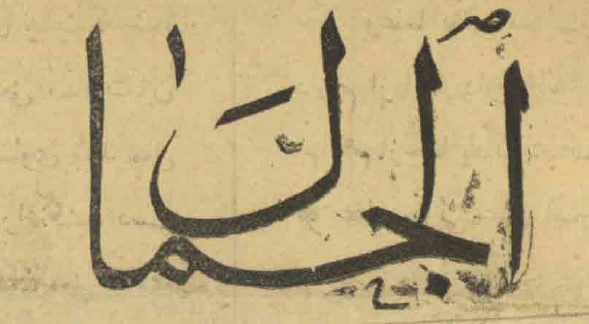 الجمال